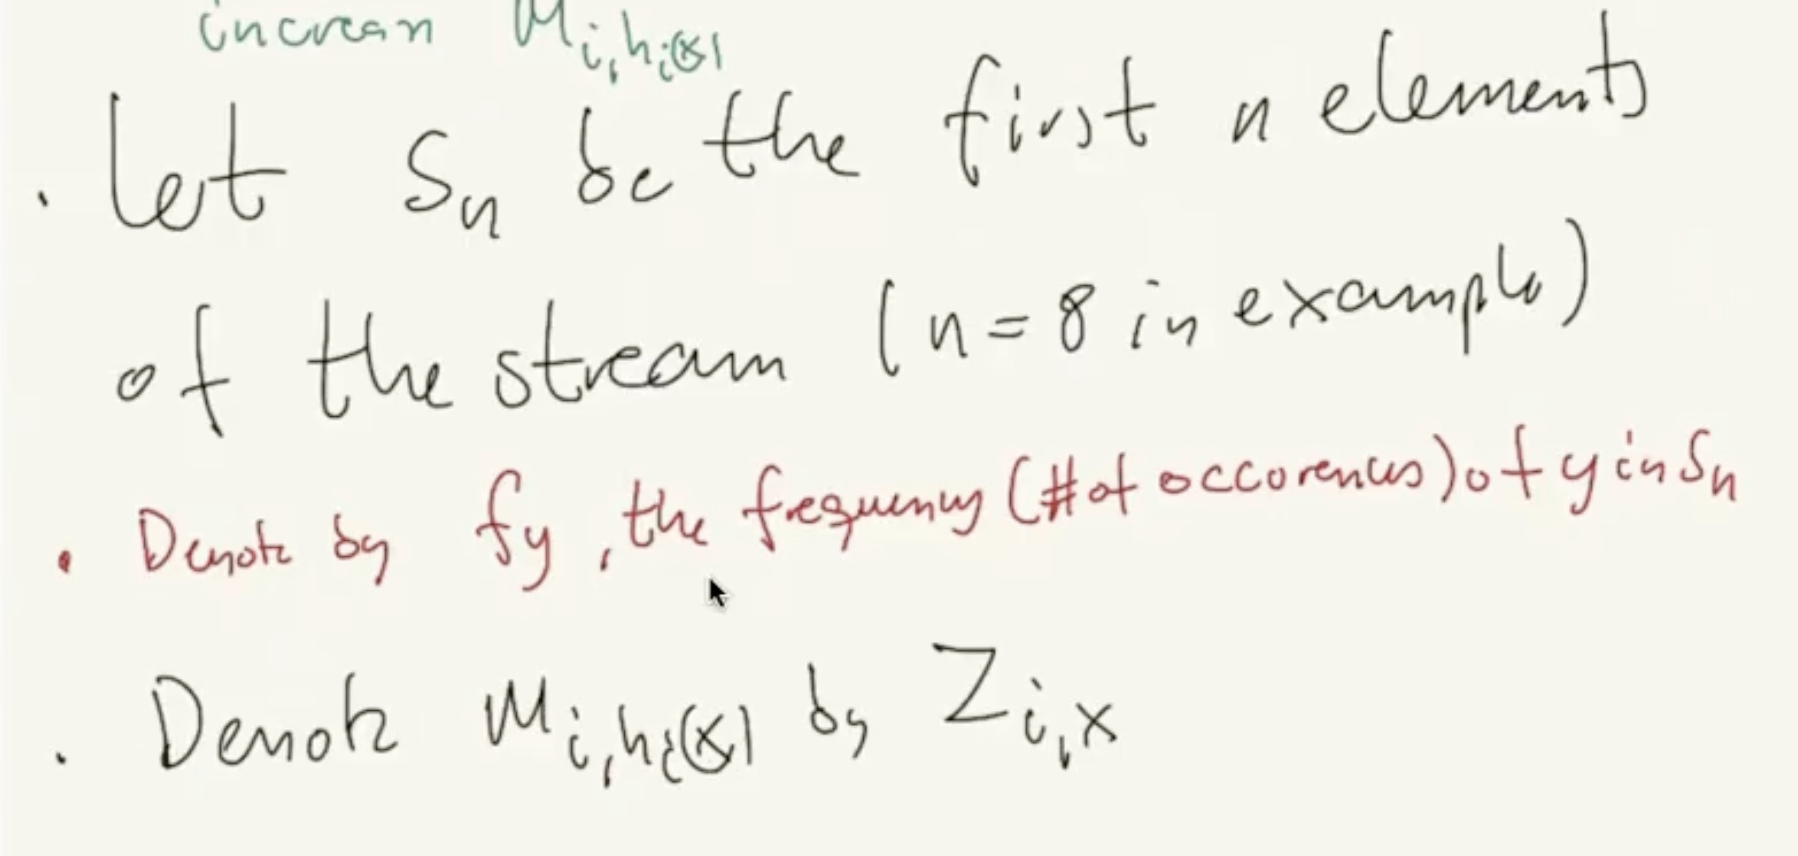 increas M i,h i(x)
• Let Sn be the first n elements
of the stream (n=8 in example)
• Denote by fy, the frequency (# of occorences) of y in Sn
• Denote M i,h i(x) by Z i,x